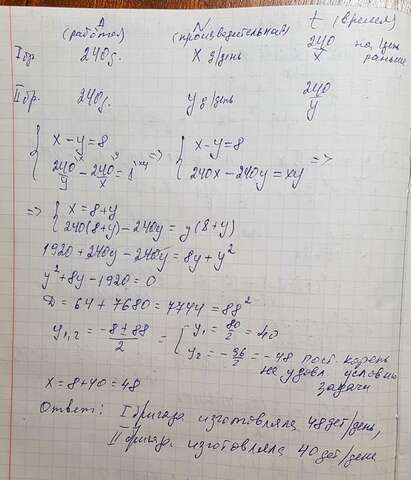 A (работа) N (производительная) t (время)
I бр. 240 g. x g/день 240/x на 1 день раньше
II бр. 240 g. y g/день 240/y
{ x - y = 8 => { x - y = 8
240/y - 240/x = 1 => 240x - 240y = xy =>
=> { x = 8 + y
240(8+y) - 240y = y(8+y)
1920 + 240y - 240y = 8y + y²
y² + 8y - 1920 = 0
D = 64 + 7680 = 7744 = 88²
y₁,₂ = (-8 ± 88)/2 = [ y₁ = 80/2 = 40
y₂ = -96/2 = -48 пост. корень
не удовл. условию
задачи
x = 8 + 40 = 48
Ответ: I бригада изготовляла 48 дет/день,
II бригада изготовляла 40 дет/день